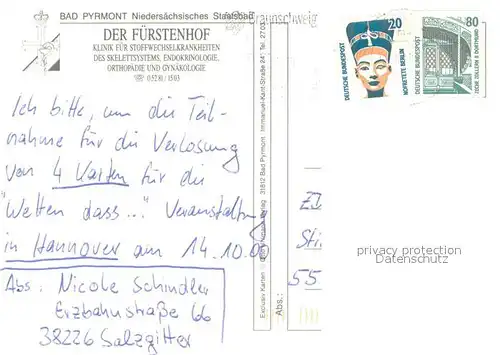 BAD PYRMONT Niedersächsisches Staatsbad
DER FÜRSTENHOF
KLINIK FÜR STOFFWECHSELKRANKHEITEN
DES SKELETTSYSTEMS, ENDOKRINOLOGIE,
ORTHOPÄDIE UND GYNÄKOLOGIE
☎ 0 52 81 / 15 03
Braunschweig
20
DEUTSCHE BUNDESPOST
NOFRETETE BERLIN
80
DEUTSCHE BUNDESPOST
ZECHE ZOLLERN II DORTMUND
Ich bitte, um die Teil-
nahme für die Verlosung
von 4 Karten für die
"Wetten dass..." Veranstaltung
in Hannover am 14.10.00
Abs: Nicole Schindler
Erzbahnstraße 66
38226 Salzgitter
Exclusiv Karten Verlag 31812 Bad Pyrmont Immanuel-Kant-Straße 24 Tel. 27 03
Abs.:
Sti
55
privacy protection
Datenschutz